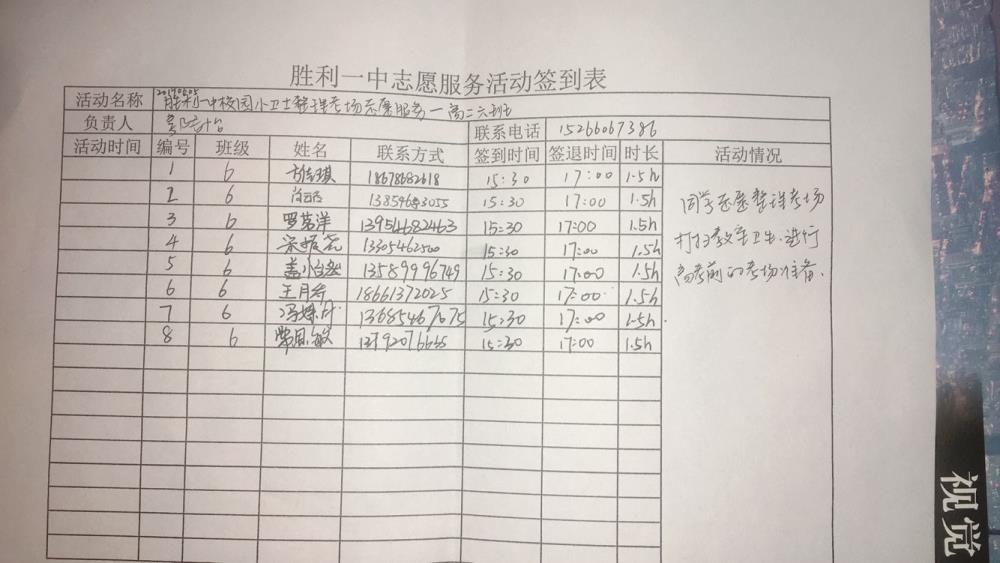 胜利一中志愿服务活动签到表
活动名称 20170605 胜利一中校园小卫士整理考场志愿服务一高二六班
负责人 联系电话 15266067386
活动时间 编号 班级 姓名 联系方式 签到时间 签退时间 时长 活动情况
1 6 18678682618 15:30 17:00 1.5h
2 6 15:30 17:00 1.5h
3 6 罗茗洋 13954682463 15:30 17:00 1.5h
4 6 13305462500 15:30 17:00 1.5h
5 6 13589996749 15:30 17:00 1.5h
6 6 18661372025 15:30 17:00 1.5h
7 6 13685467675 15:30 17:00 1.5h
8 6 15:30 17:00 1.5h
同学志愿整理考场
打扫教室卫生,进行
高考前的考场准备.
视觉